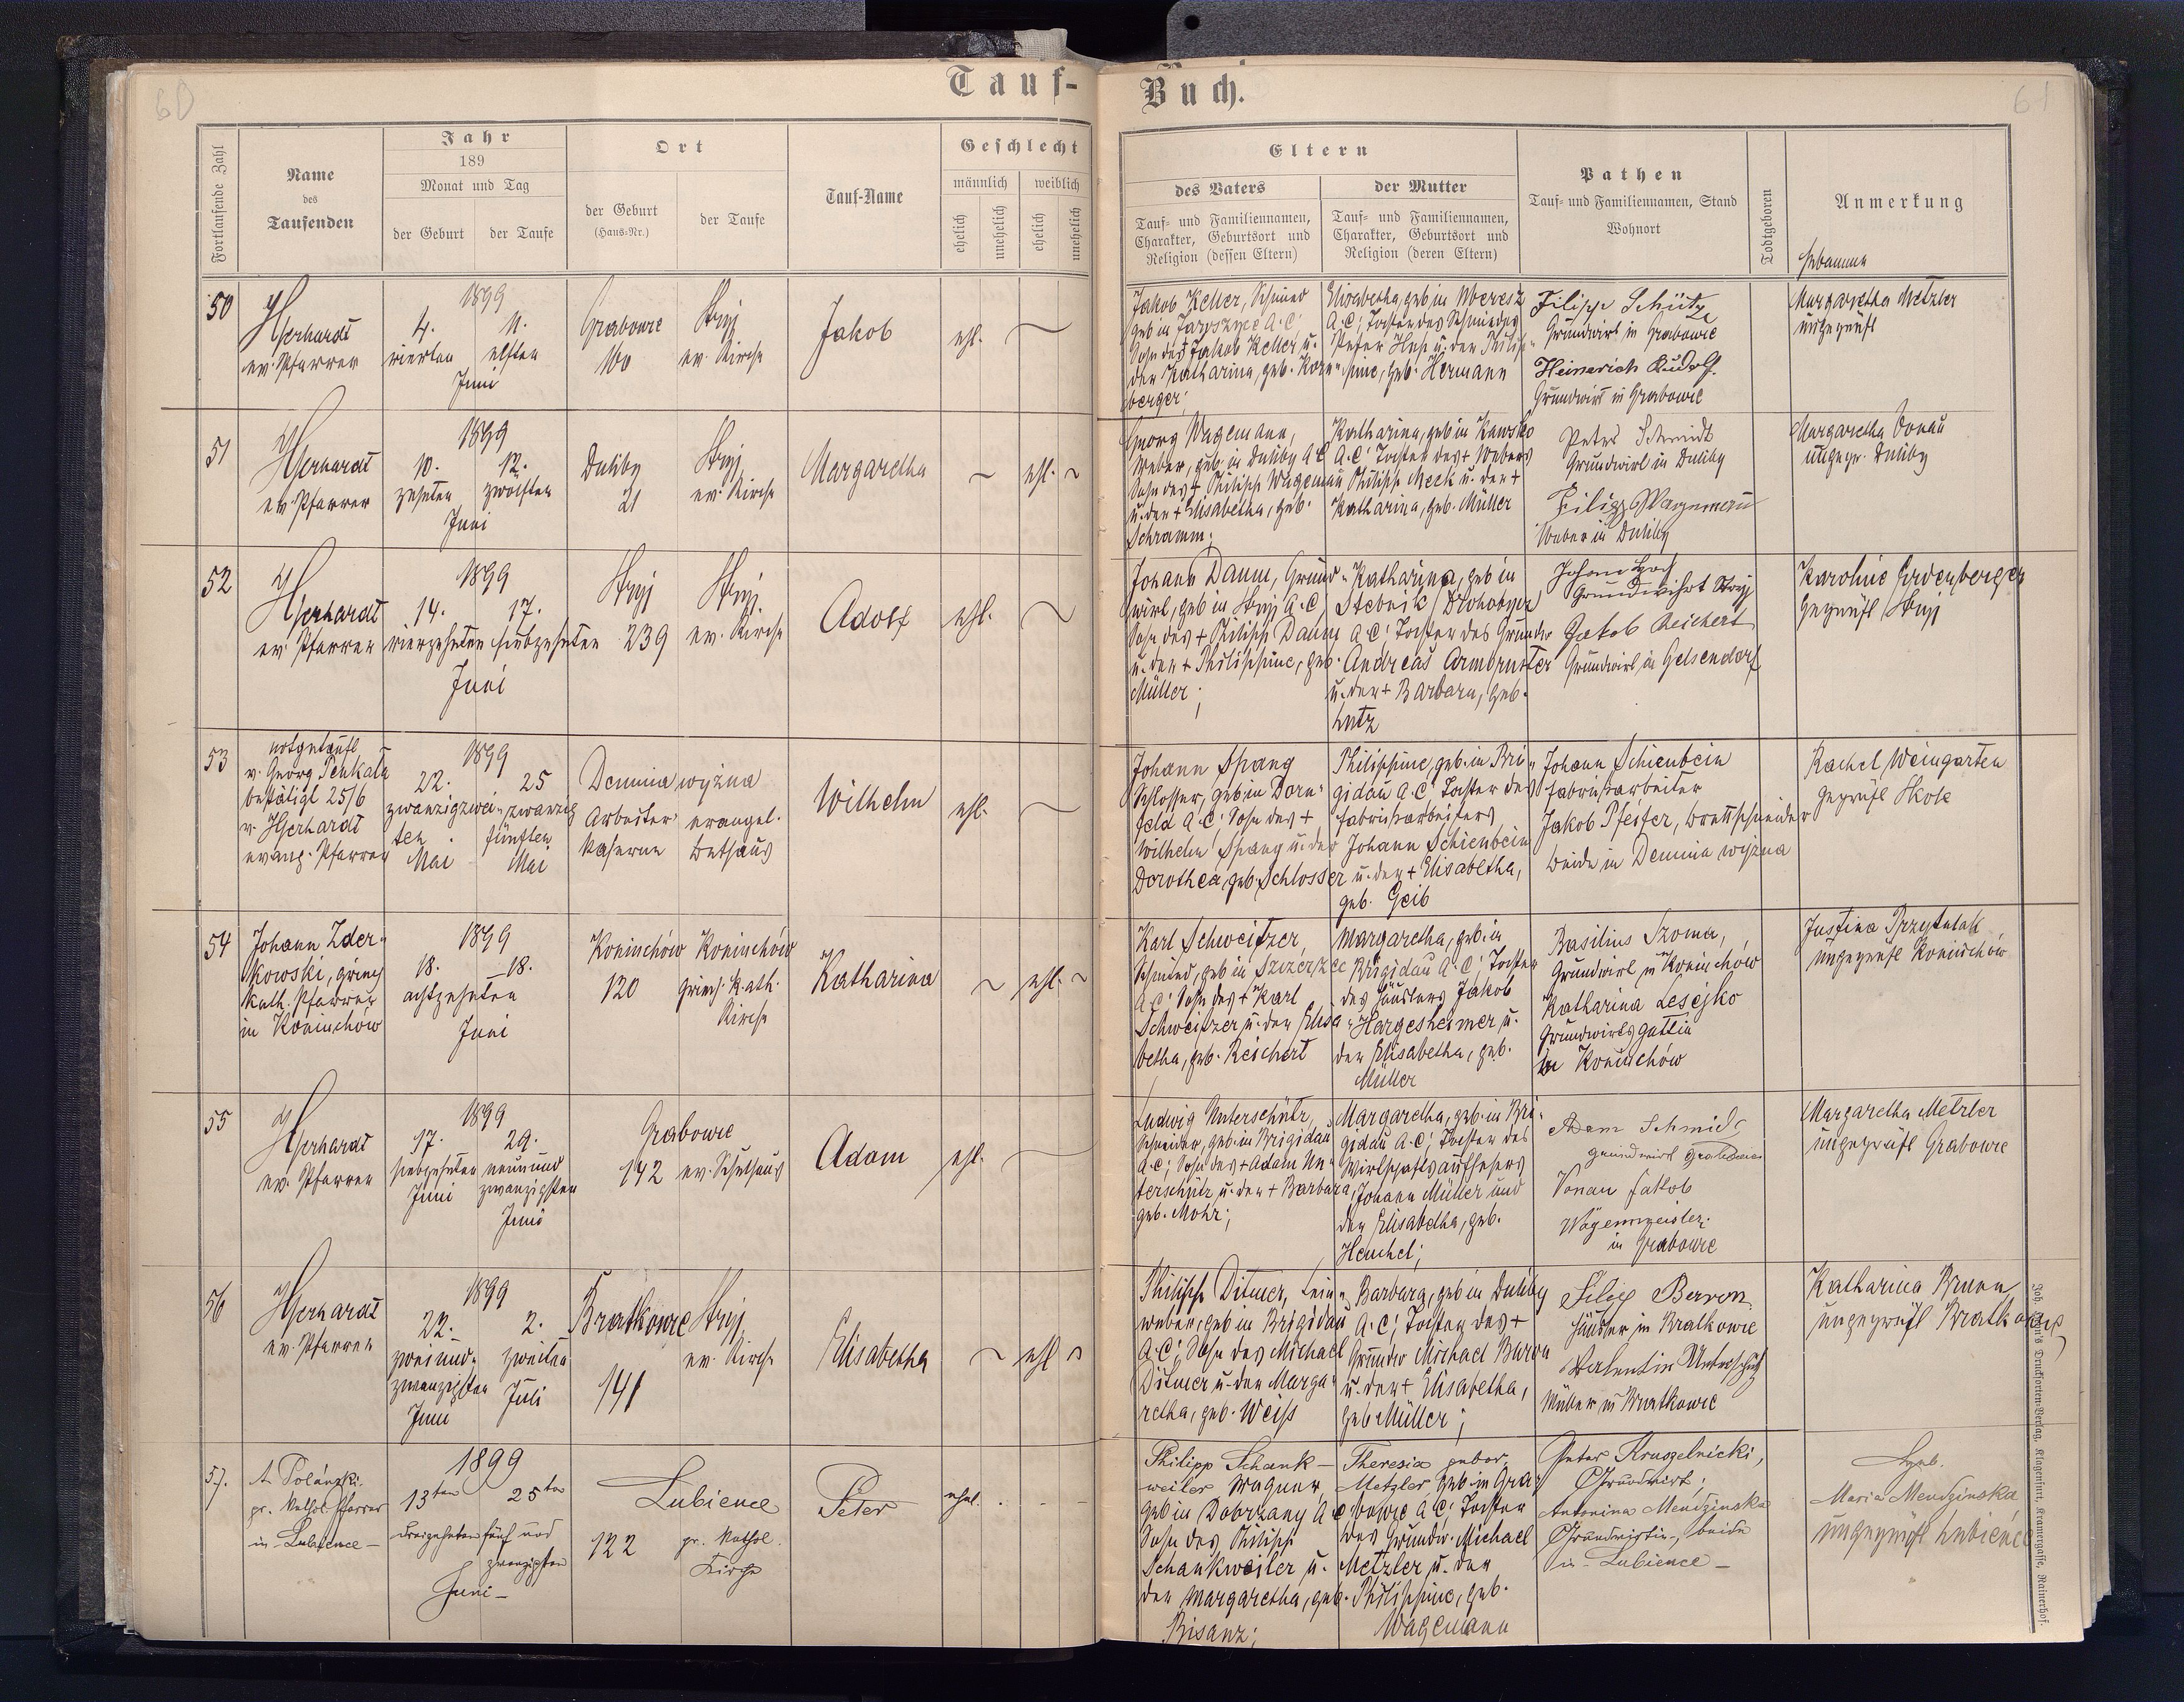 60
Tauf-
Buch.
61
Fortlaufende Zahl
Name
des
Taufenden
Jahr
189
Monat und Tag
der Geburt
der Taufe
Ort
der Geburt
(Haus-Nr.)
der Taufe
Tauf-Name
Geschlecht
männlich
weiblich
ehelich
unehelich
ehelich
unehelich
Eltern
des Vaters
Tauf- und Familiennamen,
Charakter, Geburtsort und
Religion (dessen Eltern)
der Mutter
Tauf- und Familiennamen,
Charakter, Geburtsort und
Religion (deren Eltern)
Pathen
Tauf- und Familiennamen, Stand
Wohnort
Todtgeboren
Anmerkung
Hebamme
50
Gerhardt
ev. Pfarrer
1899
4. 11.
vierten elften
Juni
Grabowce
160
Stryj
ev. Kirche
Jakob
ehl.
Jakob Keller, Schmied
geb in A.C;
Sohn des Jakob Keller u.
der Katharina, geb. Korn-
berger;
Elisabetha, geb in Ugersz
A.C; Tochter des Schmiedes
Peter Huh u. der Philip-
pine, geb. Hermann
Filipp Schütz
Grundwirt in Grabowce
Heinerich Rudolf
Grundwirt in Grabowce
Margaretha Metzler
ungeprüft
51
Gerhardt
ev. Pfarrer
1899
10. 12.
zehnten zwölften
Juni
Duliby
21
Stryj
ev. Kirche
Margaretha
ehl.
Georg Wagemann,
Weber, geb. in Duliby A C
Sohn des + Philipp Wagemann
u. der + Elisabetha, geb.
Schramm;
Katharina, geb in Kawsko
A.C; Tochter des + Webers
Philipp Meck u. der +
Katharina, geb. Müller
Peter Schmidt
Grundwirt in Duliby
Filipp Wagemann
Weber in Duliby
Margaretha Donau
ungepr. Duliby
52
Gerhardt
ev. Pfarrer
1899
14. 17.
vierzehnten siebzehnten
Juni
Stryj
239
Stryj
ev. Kirche
Adolf
ehl.
Johann Daum, Grund-
wirt, geb in Stryj A.C,
Sohn des + Philipp Daum
u. der + Philippine, geb.
Müller;
Katharina, geb in
Stebnik / Drohobycz
A C; Tochter des Grundw
Andreas Armbruster
u. der + Barbara, geb.
Lutz
Johann
Grundwihrt Stryj
Jakob Reichert
Grundwirt in Gelsendorf
Karoline Erdenberger
geprüft Stryj
53
notgetauft
v. Georg Penkala
bestätigt 25/6
v. Gerhardt
evang. Pfarrer
1899
22. 25
zwanzigzwei- zwanzig
ten fünften
Mai Mai
Demnia wyżna
Arbeiter- evangel.
kaserne Bethaus
Wilhelm
ehl.
Johann Spang
Schlosser, geb in Dorn-
feld A.C; Sohn des +
Wilhelm Spang u. der
Dorothea, geb. Schlosser
Philippine, geb. in Bri-
gidau A.C Tochter des
Fabriksarbeiters
Johann Schienbein
u. der + Elisabetha,
geb. Geib
Johann Schienbein
Fabriksarbeiter
Jakob Pfeifer, Brettschneider
beide in Demnia wyzna
Rachel Weingarten
geprüft Skole
54
Johann Zder-
kowski, griech
kath. Pfarrer
in Koniuchów
1899
18. 18.
achtzehnten
Juni
Koniuchów
120
Koniuchów
griech. kath.
Kirche
Katharina
ehl.
Karl Schweitzer,
Schmied, geb in Szczerzec
A C; Sohn des + Karl
Schweitzer u. der Elisa-
betha, geb. Reichert
Margaretha, geb. in
Brigidau A.C; Tochter
des Häuslers Jakob
Hargesheimer u.
der Elisabetha, geb.
Müller
Basilius Szoma,
Grundwirt in Koniuchów
Katharina Lesejko
Grundwirtsgattin
in Koniuchów
Justina Przytulak
ungeprüft Koniuchów
55
Gerhardt
ev. Pfarrer
1899
17. 29.
siebzehnten neunund
Juni zwanzigsten
Juni
Grabowce
142 ev. Schulhaus
Adam
ehl.
Ludwig Unterschütz,
Schneider, geb. in Brigidau
A.C; Sohn des + Adam Un-
terschütz u. der + Barbara,
geb. Mohr;
Margaretha, geb. in Bri-
gidau A.C; Tochter des
Wirtschaftsaufsehers
Johann Müller und
der Elisabetha, geb.
Henchel;
Adam Schmid
grundwirt Grabowce
Vonau Jakob
Wägenmeister
in Grabowce
Margaretha Metzler
ungeprüft Grabowce
56
Gerhardt
ev. Pfarrer
1899
22. 2.
zweiund- zweiten
zwanzigsten Juli
Juni
Bratkowce
141
Stryj
ev. Kirche
Elisabetha
ehl
Philipp Ditmer, Lein-
weber, geb in Brigidau
A.C; Sohn des Michael
Ditmer u. der Marga-
retha, geb. Weiss
Barbara, geb in Duliby
A.C; Tochter des +
Grundw Michael Baron
u. der + Elisabetha,
geb Müller;
Filip Berron
Häusler in Bratkowce
Valentin Unterschütz
Müller in Bratkowce
Katharina Brunn
ungeprüft Bratkowce
57.
A. Polański
gr. kathol. Pfarrer
in Lubience
1899
13ten 25ten
dreizehnten fünf und
zwanzigsten
Juni
Lubience
122 gr. kathol.
Kirche
Peter
ehel.
Philipp Schank-
weiler Wagner,
geb in Dobrzany A.C
Sohn des Philipp
Schankweiler u.
der Margaretha, geb.
Bisanz;
Theresia gebor.
Metzler, geb. in Gra-
bowce A C; Tochter
des Grundw. Michael
Metzler u. der
Philippine, geb.
Wagemann
Peter Kruszelnicki,
Grundwirt;
Antonina Mendzinska
Grundwirtin, beide
in Lubience
Hebb.
Maria Mendzinska
ungeprüft Lubience
Druckforten-Verlag, Klagenfurt, Kramergasse, Rainerhof.